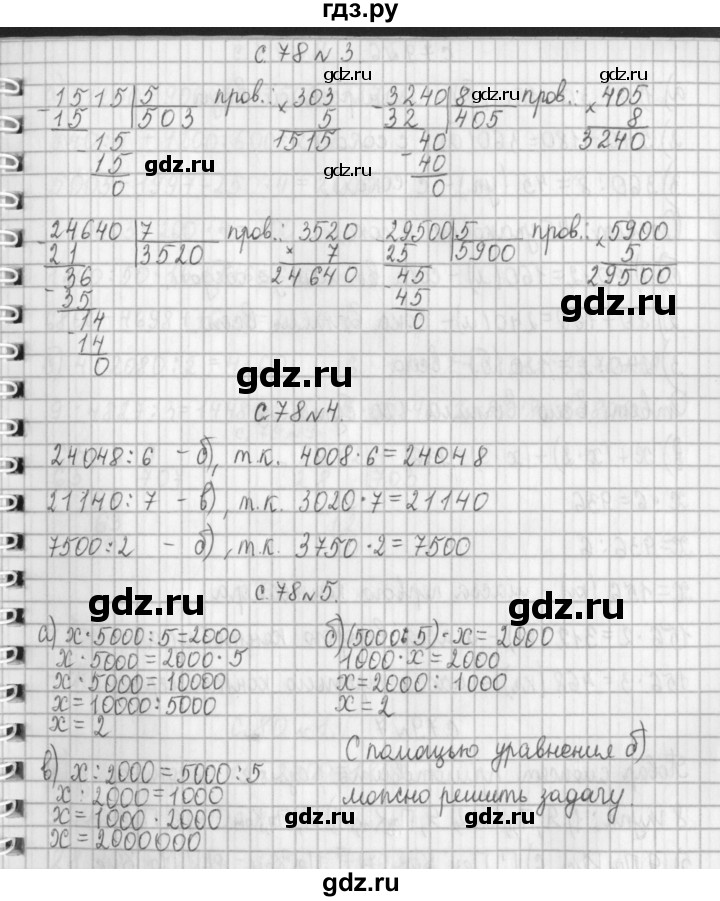 гдз.ру
с.78 №3
1515 | 5 пров.: 303 3240 | 8 пров.: 405
15 503 × 5 32 405 × 8
15 1515 40 3240
15 40
0 0
24640 | 7 пров.: 3520 29500 | 5 пров.: 5900
21 3520 × 7 25 5900 × 5
36 24640 45 29500
35 45
14 0
14
0
с.78 №4.
24048:6 – б), т.к. 4008·6=24048
21140:7 – в), т.к. 3020·7=21140
7500:2 – б), т.к. 3750·2=7500
с.78 №5.
а) x·5000:5=2000
x·5000=2000·5
x·5000=10000
x=10000:5000
x=2
б) (5000:5)·x=2000
1000·x=2000
x=2000:1000
x=2
в) x:2000=5000:5
x:2000=1000
x=1000·2000
x=2000000
С помощью уравнения б)
можно решить задачу
gdz.ru
gdz.ru
gdz.ru
gdz.ru
gdz.ru
gdz.ru
gdz.ru
gdz.ru
gdz.ru
gdz.ru
gdz.ru
gdz.ru
gdz.ru